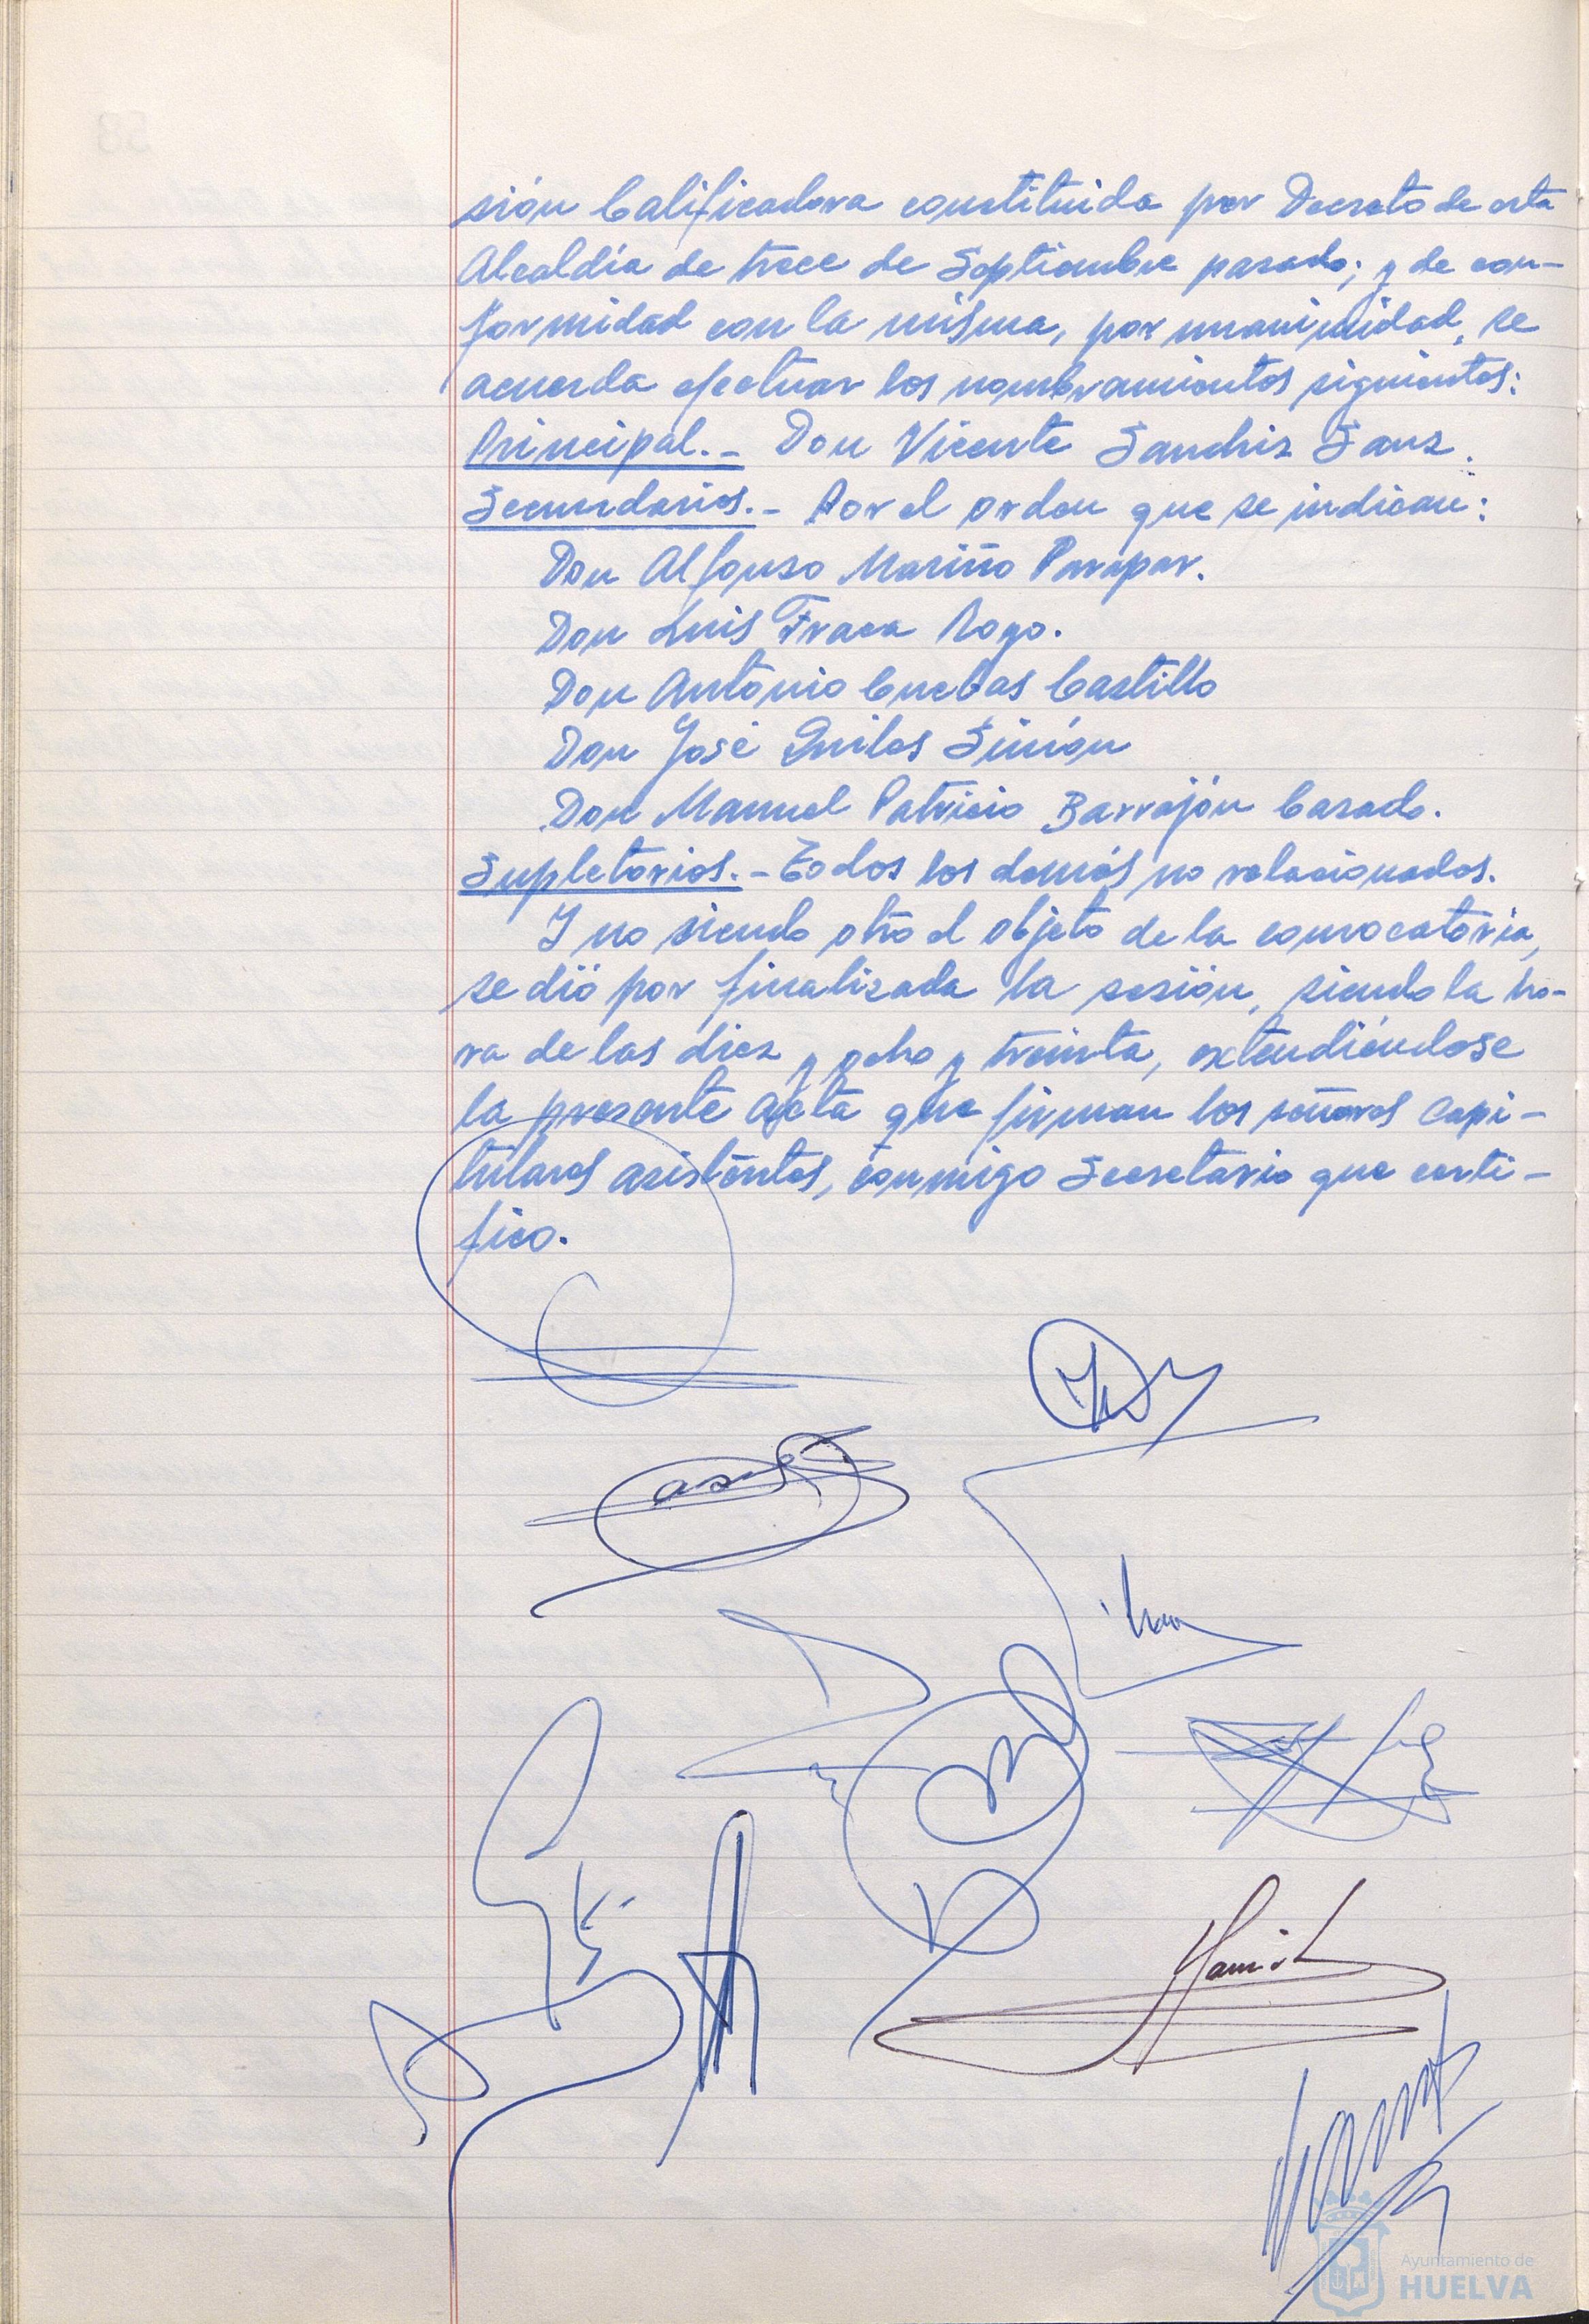 sión Calificadora constituida por Decreto de esta
Alcaldía de trece de Septiembre pasado; y de con-
formidad con la misma, por unanimidad, se
acuerda efectuar los nombramientos siguientes:
Principal.- Don Vicente Sanchiz Sanz.
Secundarios.- Por el orden que se indican:
Don Alfonso Mariño Parapar.
Don Luis Fraca Royo.
Don Antonio Cuebas Castillo
Don José Quiles Simón
Don Manuel Patricio Barrajón Casado.
Supletorios.- Todos los demás no relacionados.
Y no siendo otro el objeto de la convocatoria,
se dió por finalizada la sesión, siendo la ho-
ra de las diez y ocho y treinta, extendiéndose
la presente Acta que firman los señores Capi-
tulares asistentes, conmigo Secretario que certi-
fico.
Ayuntamiento de
HUELVA